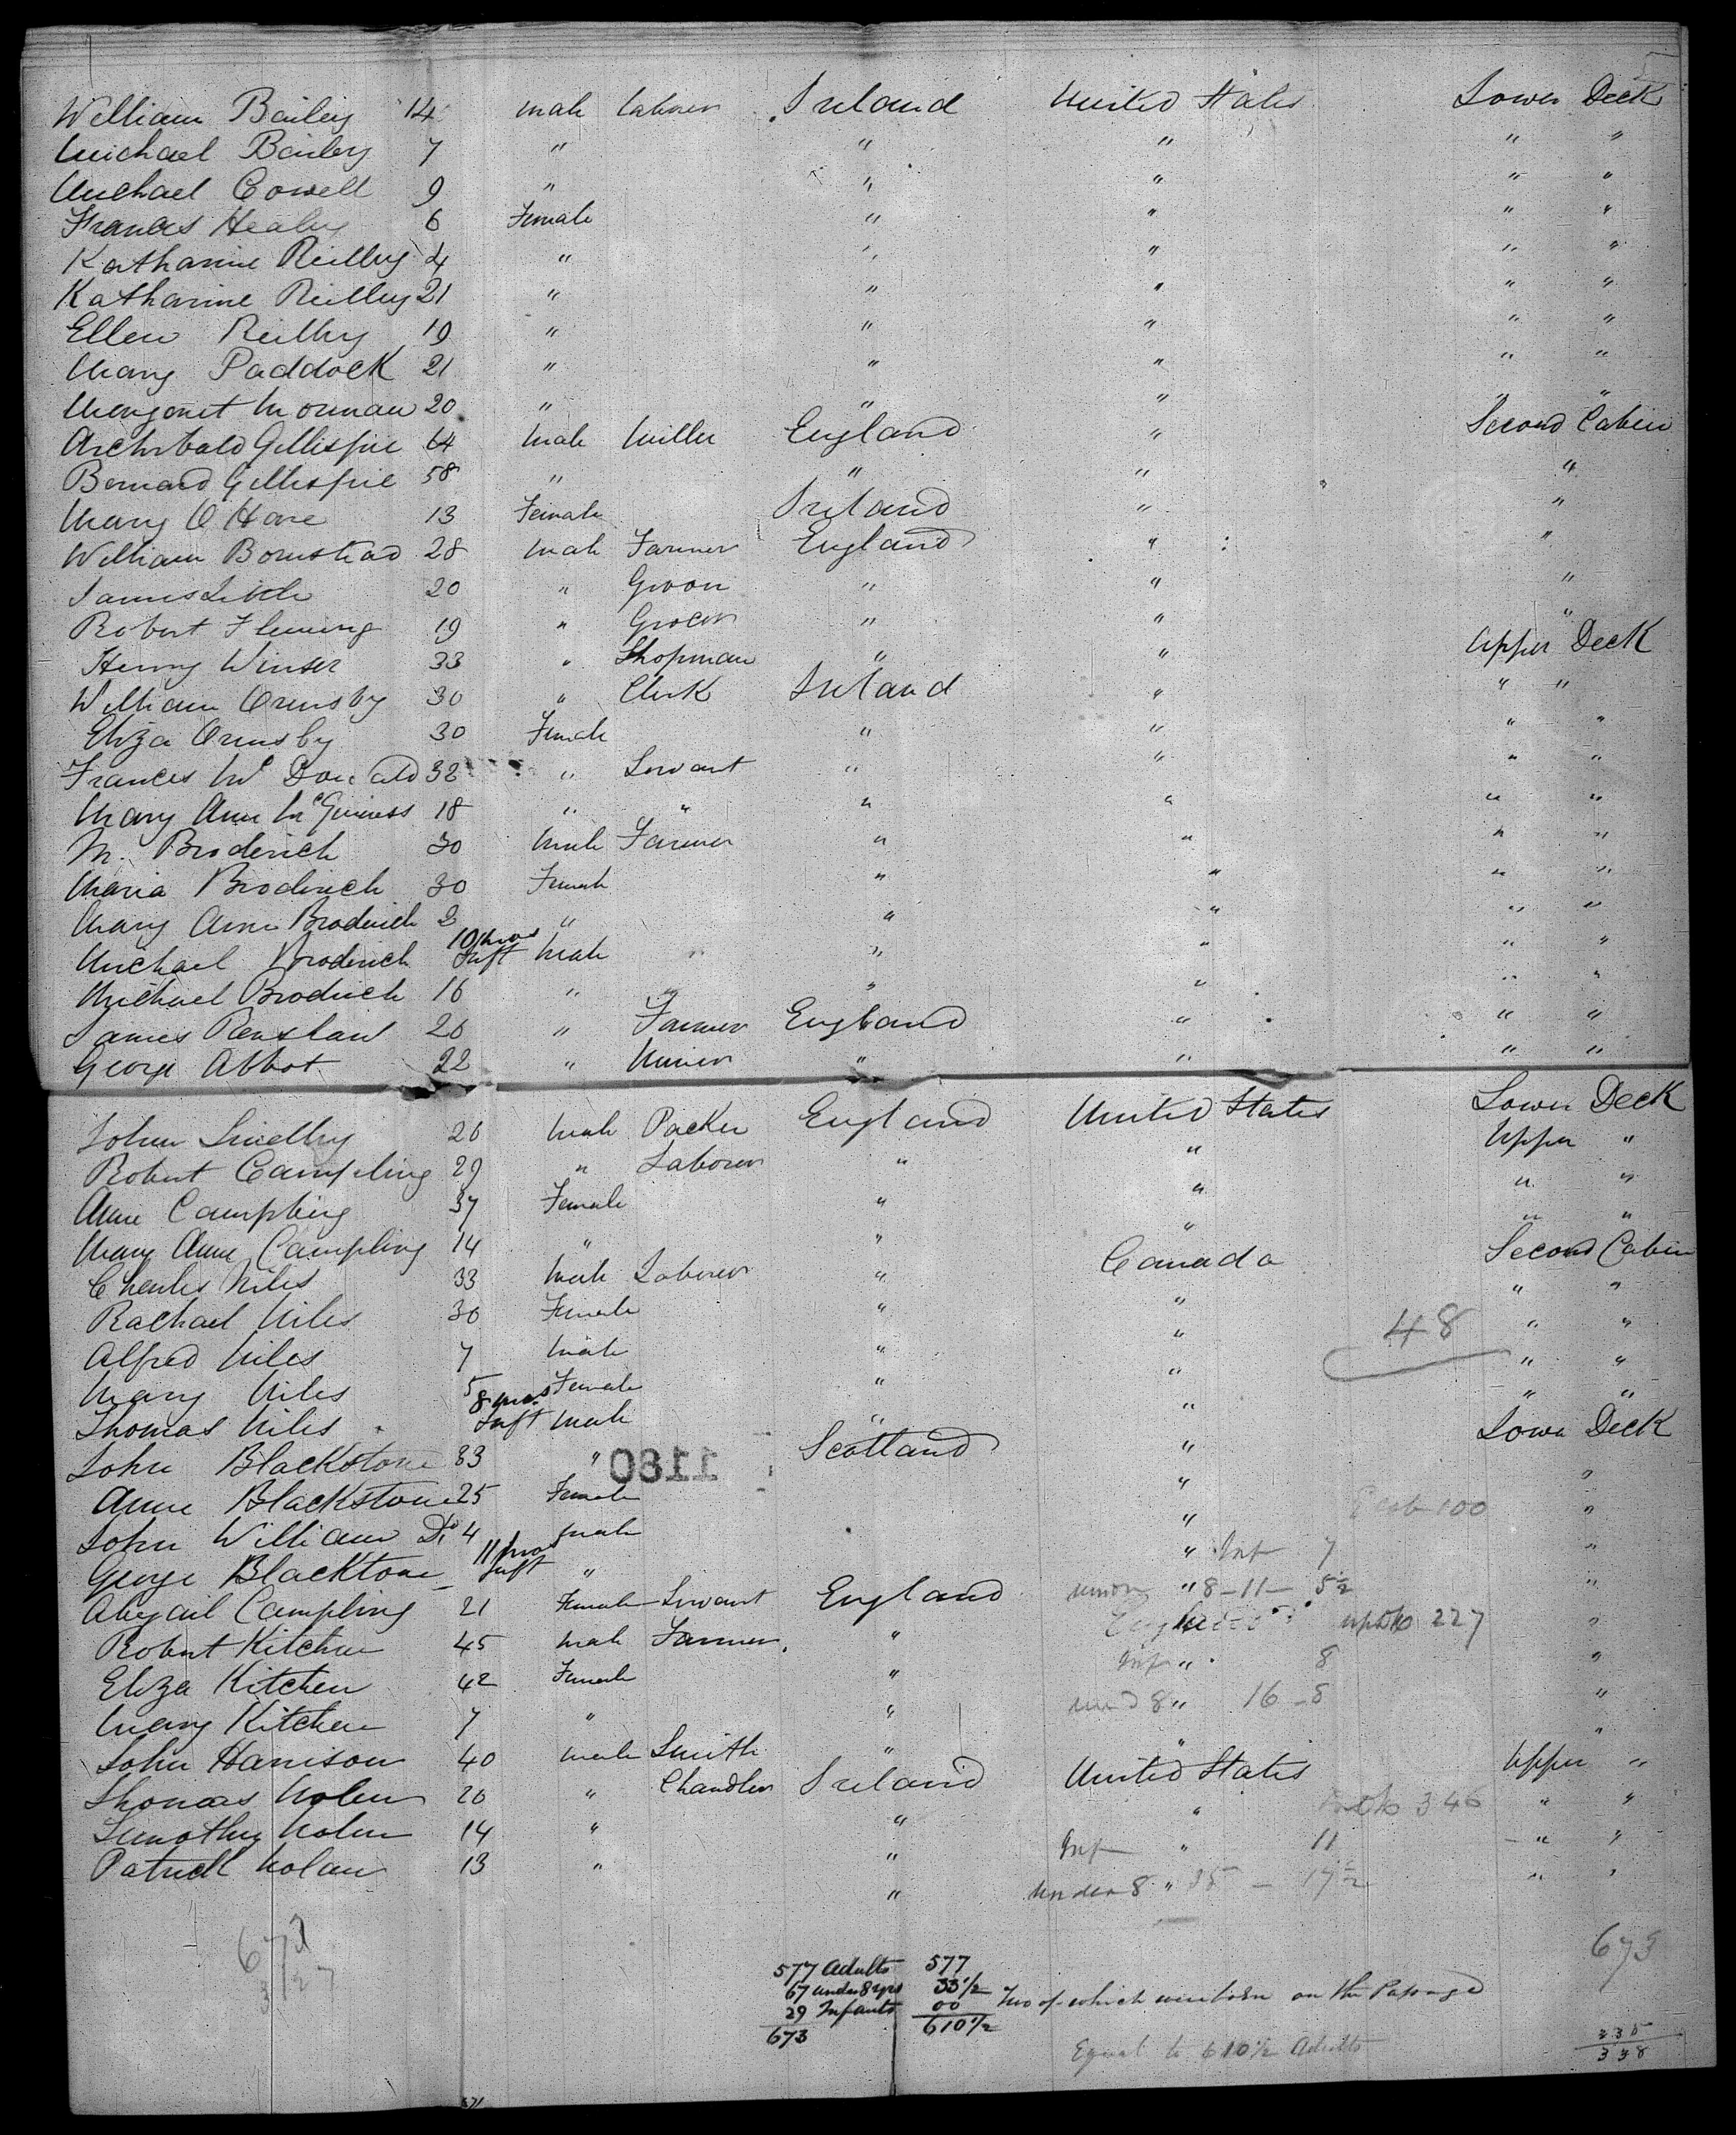 William Bailey 14 male laborer Ireland United States Lower Deck
Michael Bailey 7 " " " " "
Michael Cowell 9 " " " " "
Frances Healey 6 Female " " " "
Katharine Reilley 4 " " " " "
Katharine Reilley 21 " " " " "
Ellen Reilley 19 " " " " "
Mary Paddock 21 " " " " "
Margaret 20 " " " " "
Archibald Gillispie 64 male Miller England " Second Cabin
Bernard Gillispie 58 " " " "
Mary O Hare 13 Female Ireland " "
William Bomstead 28 male Farmer England " "
James Little 20 " Groom " " "
Robert Fleming 19 " Grocer " " "
Henry Winser 33 " Shopman " " Upper Deck
William Ormsby 30 " Clerk Ireland " " "
Eliza Ormsby 30 Female " " " "
Frances Mc Donald 32 " Servant " " " "
Mary Ann McGuiness 18 " " " " " "
M. Broderick 30 male Farmer " " " "
Maria Broderick 30 Female " " " "
Mary Ann Broderick 2 " " " " "
Michael Broderick 10 mos Inft male " " " " "
Michael Broderick 16 " " " " " "
James Renshaw 26 " Farmer England " " "
George Abbot 22 " Miner " " " "
John Smelley 26 male Packer England United States Lower Deck
Robert Campling 29 " Laborer " " Upper "
Anne Campling 37 Female " " " "
Mary Anne Campling 14 " " " " "
Charles Niles 33 male Laborer " Canada Second Cabin
Rachael Niles 30 Female " " " "
Alfred Niles 7 male " " 48 " "
Mary Niles 5 Female " " " "
Thomas Niles 8 mos Inft male " " " "
John Blackstone 33 " Scotland " Lower Deck
1180
Anne Blackstone 25 Female " "
John William Do 4 male " 100 "
George Blacktone 11 mos Inft " " Inf 7 "
Abigail Campling 21 Female Servant England " 8-11- 5½ "
Robert Kitchen 45 male Farmer " 227 "
Eliza Kitchen 42 Female " Inf " 8 "
Mary Kitchen 7 " " und 8 " 16 - 8 "
John Harrison 40 male Smith " " "
Thomas Nolan 20 " Chandler Ireland United States Upper "
Timothy Nolan 14 " " " 346 " "
Patrick Nolan 13 " " Inf " 11 " "
" Under 8 " 35 - 17½ " "
673 673
577 Adults 577
67 under 8 yrs 33½
29 Infants 00 Two of which were born on the Passage
673 610½
Equal to 610½ Adults
335
338